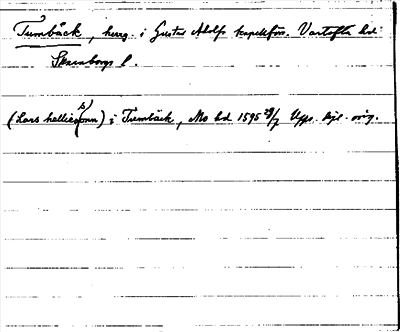 Tumbäck, herrg. i Gustav Adolfs kapellförs. Vartofta hd
Skaraborgs l.
(Lars hellie(s)sonn) i Tumbäck, Mo hd 1595 29/7 Upps. kjl. orig.